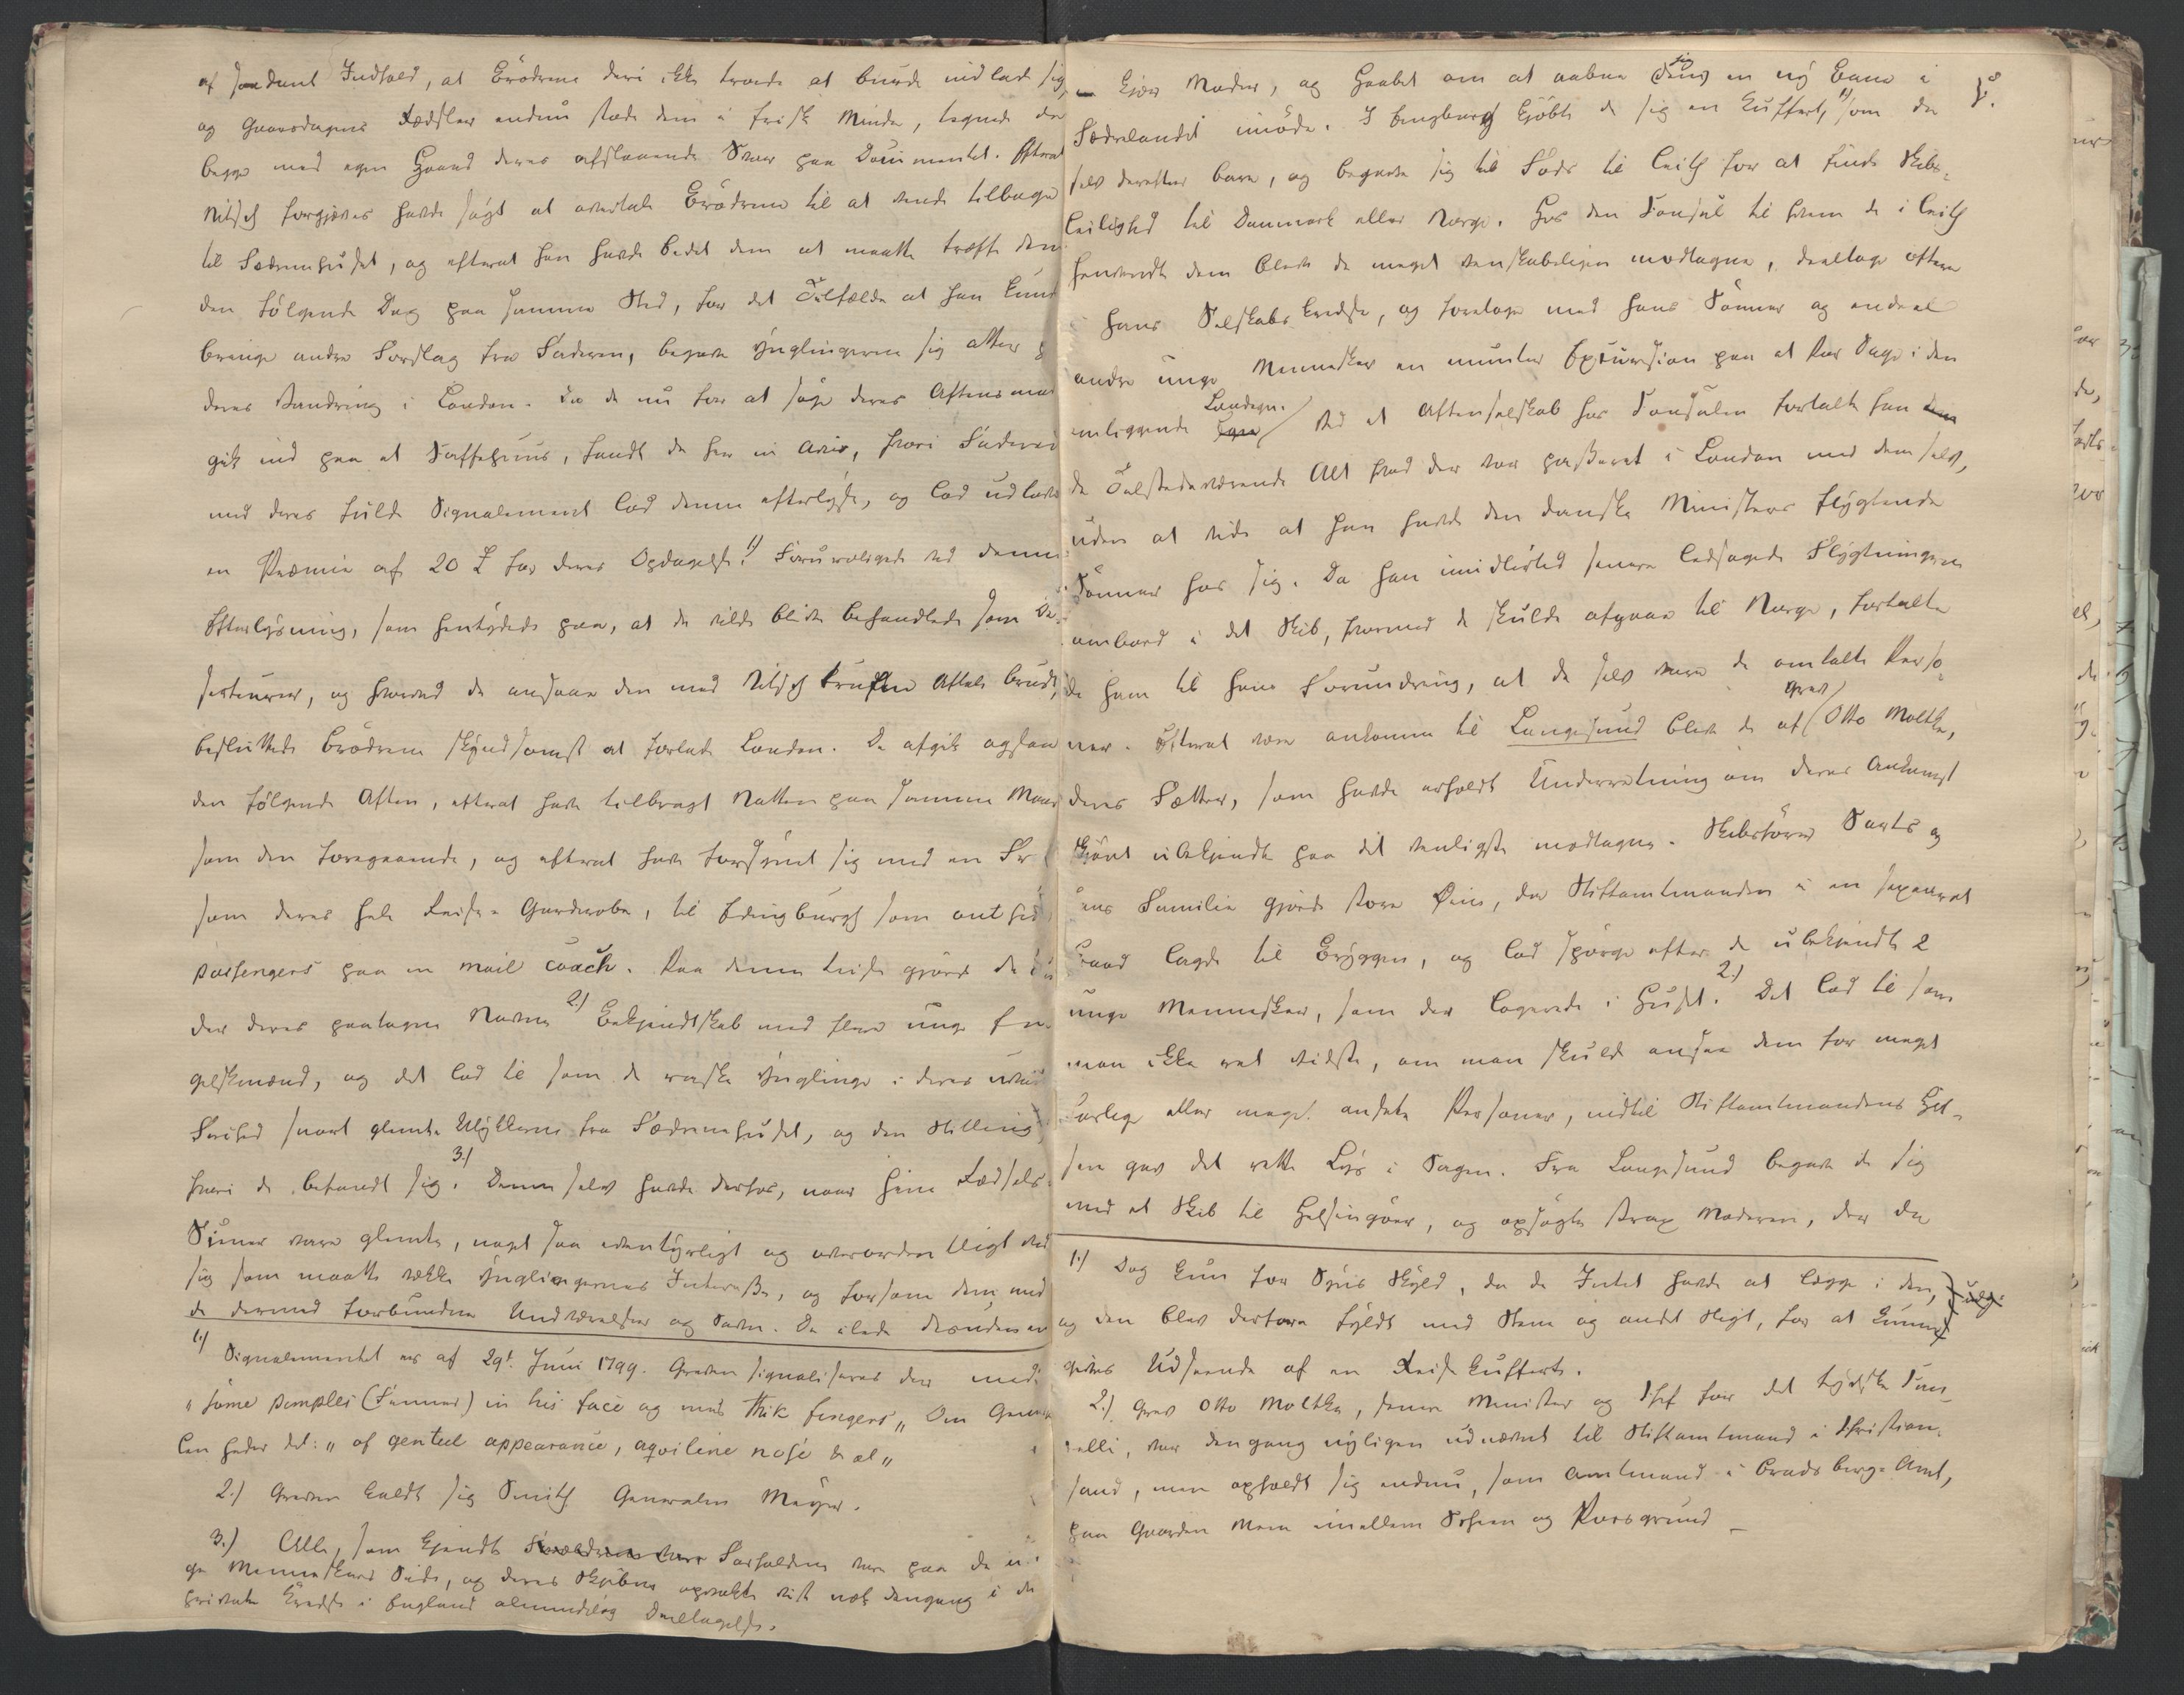 af saadant Indhold, at Brødrene deri ikke troede at burde indlade sig,
og Gaarsdagens Rædsler endnu stode dem i frisk Minde, tegnede de
begge med egen Haand deres afslaaende Svar paa Documentet. Efterat
forgjæves havde søgt at overtale Brødrene til at vende tilbage
til Fædrenehuset, og efterat han havde bedet dem at maatte træffe dem
den følgende Dag paa samme Sted, for det Tilfælde at han kunde
bringe andre Forslag fra Faderen, begave Ynglingerne sig atter
deres Vandring i London. Da de nu for at søge deres Aftensmad
gik ind paa et Kaffehuus, fandt de her en Avis, hvori Faderen
med deres fulde Signalement lod denne efterlyse, og lod udlove
en Præmie af 20 £ for deres Opdagelse. 1) Foruroligede ved denne
Efterlysning, som hentydede paa, at de vilde blive behandlede som De-
serteurer, og hvorved de ansaae den med trufne Aftale brudt,
besluttede Brødrene skyndsomst at forlade London. De afgik ogsaa
den følgende Aften, efterat have tilbragt Natten paa samme Maade
som den foregaaende, og efterat have forsynet sig med en
som deres hele Reise-Garderobe, til Edingburgh som outside
passengers paa en mail coach. Paa denne Reise gjorde de un-
der deres paatagne Navne 2) Bekjendtskab med flere unge En-
gelskmænd, og det lod til som de raske Ynglinge i deres
Frihed snart glemte Ulykkerne fra Fædrenehuset, og den Stilling,
hvori de befandt sig. 3) Denne selv havde derfor, naar hine Rædsels-
Scener vare glemte, noget saa eventyrligt og overordentligt ved
sig som maatte vække Ynglingernes Interesse, og forsone dem med
de dermed forbundne Undværelser og Savn. De ilede desuden en
1) Signalementet er af 29t. Juni 1799. Greven signaliseres der med:
"some pimples (Finner) in his face og med thik fingers" Om Genera-
len heder det: "of genteel appearance, aqviline nose & al"
2.) Greven kaldt sig Smith Generalen Meyer.
3.) Alle, som kjendte Forholdene vare paa de un-
ge Menneskers Side, og deres Skjæbne opvakte vist nok dengang i de
private Kredse i England almindelig Deeltagelse.
kjær Moder, og Haabet om at aabne sig en ny Bane i 8.
Fædrelandet imøde. I Edingburg kjøbte de sig en Kuffert, 1) som de
selv derefter bare, og begave sig til Fods til Leith for at finde Skibs-
leilighed til Danmark eller Norge. Hos den Consul til hvem de i Leith
henvendte dem bleve de meget venskabeligen modtagne, deeltoge oftere
i hans Selskabs Kredse, og foretoge med hans Sønner og endeel
andre unge Mennesker en munter Excursion paa et Par Dage i den
omliggende Landegn. Ved et Aftenselskab hos Consulen fortalte han
de Tilstedeværende Alt hvad der var passeret i London med dem selv,
uden at vide at han havde den danske Ministers flygtende
Sønner hos sig. Da han imidlertid senere ledsagede Flygtningerne
ombord i det Skib, hvormed de skulde afgaae til Norge, fortalte
de ham til hans Forundring, at de selv vare de omtalte Perso-
ner. Efterat være ankomne til Langesund bleve de af Grev Otto Moltke,
deres Fætter, som havde erholdt Underretning om deres Ankomst
skjønt ubekjendte paa det venligste modtagne. Skibsfører og
hans Familie gjorde store Øine, da Stiftamtmanden i en separat
Baad lagde til Bryggen, og lod spørge efter de ubekjendte 2
unge Mennesker, som der logerede i Huset. 2.) Det lod til som
man ikke ret vidste, om man skulde ansee dem for meget
farlige eller meget andete Personer, indtil Stiftamtmandens Hil-
sen gav det rette Lys i Sagen. Fra Langesund begave de sig
med et Skib til Helsingøer, og opsøgte strax Moderen, der da
1.) Dog kun for Syns Skyld, da de Intet havde at lægge i den,
og den blev derfore fyldt med Steene og andet Sligt, for at kunne
gives Udseende af en Reise Kuffert.
2.) Grev Otto Moltke, senere Minister og Chef for det tydske Can-
celli, var dengang nyligen udnævnt til Stiftamtmand i Christian-
sand, men opholdt sig endnu, som Amtmand i Bradsberg-Amt,
paa Gaarden Mæla imellem Scheen og Porsgrund –